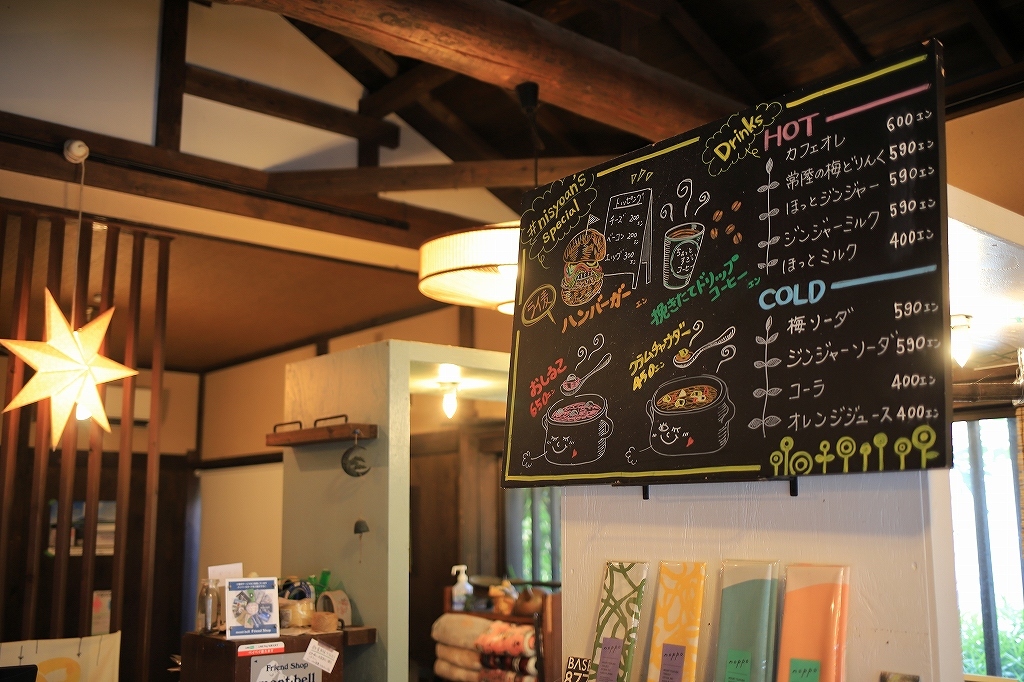 #nisyoan's
special
トッピング
チーズ 200
ベーコン 200
エッグ 300
ライ麦
ハンバーガー エン
ちょっと
コーヒー
挽きたてドリップ
コーヒー エン
おしるこ
650エン
クラムチャウダー
450エン
Drinks
HOT
カフェオレ 600エン
常陸の梅どりんく 590エン
ほっとジンジャー 590エン
ジンジャーミルク 590エン
ほっとミルク 400エン
COLD
梅ソーダ 590エン
ジンジャーソーダ 590エン
コーラ 400エン
オレンジジュース 400エン
Friend Shop
Friend Shop
mont-bell
BASE
877
noppo
noppo